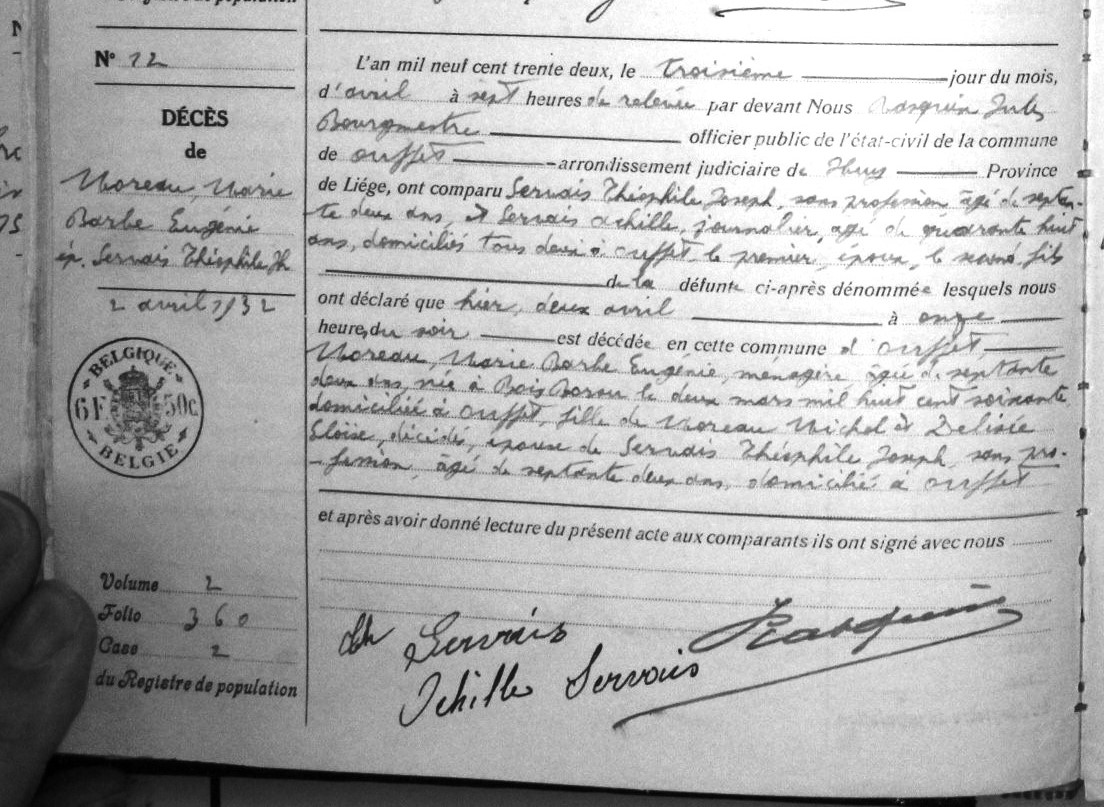 du Registre de population
N° 12
DÉCÈS
de
Moreau, Marie
Barbe Eugénie
ép. Servais Théophile Jh
2 avril 1932
BELGIQUE
6F 50c
BELGIE
Volume 2
Folio 360
Case 2
du Registre de population
L'an mil neuf cent trente deux, le troisième jour du mois,
d'avril à sept heures de relevée par devant Nous Rasquin Jules
Bourgmestre officier public de l'état-civil de la commune
de Ouffet arrondissement judiciaire de Huy Province
de Liége, ont comparu Servais Théophile Joseph, sans profession, âgé de septan-
te deux ans, et Servais Achille, journalier, âgé de quarante huit
ans, domiciliés tous deux à Ouffet, le premier, époux, le second, fils
de la défunte ci-après dénommée lesquels nous
ont déclaré que hier, deux avril à onze
heures du soir est décédée en cette commune d'Ouffet
Moreau, Marie Barbe Eugénie, ménagère âgée de septante
deux ans, née à Bois Borsu le deux mars mil huit cent soixante,
domiciliée à Ouffet, fille de Moreau Michel et Delisée
Eloïse, décédés, épouse de Servais Théophile Joseph, sans pro-
fession, âgé de septante deux ans, domicilié à Ouffet
et après avoir donné lecture du présent acte aux comparants ils ont signé avec nous
Th Servais
Rasquin
Achille Servais